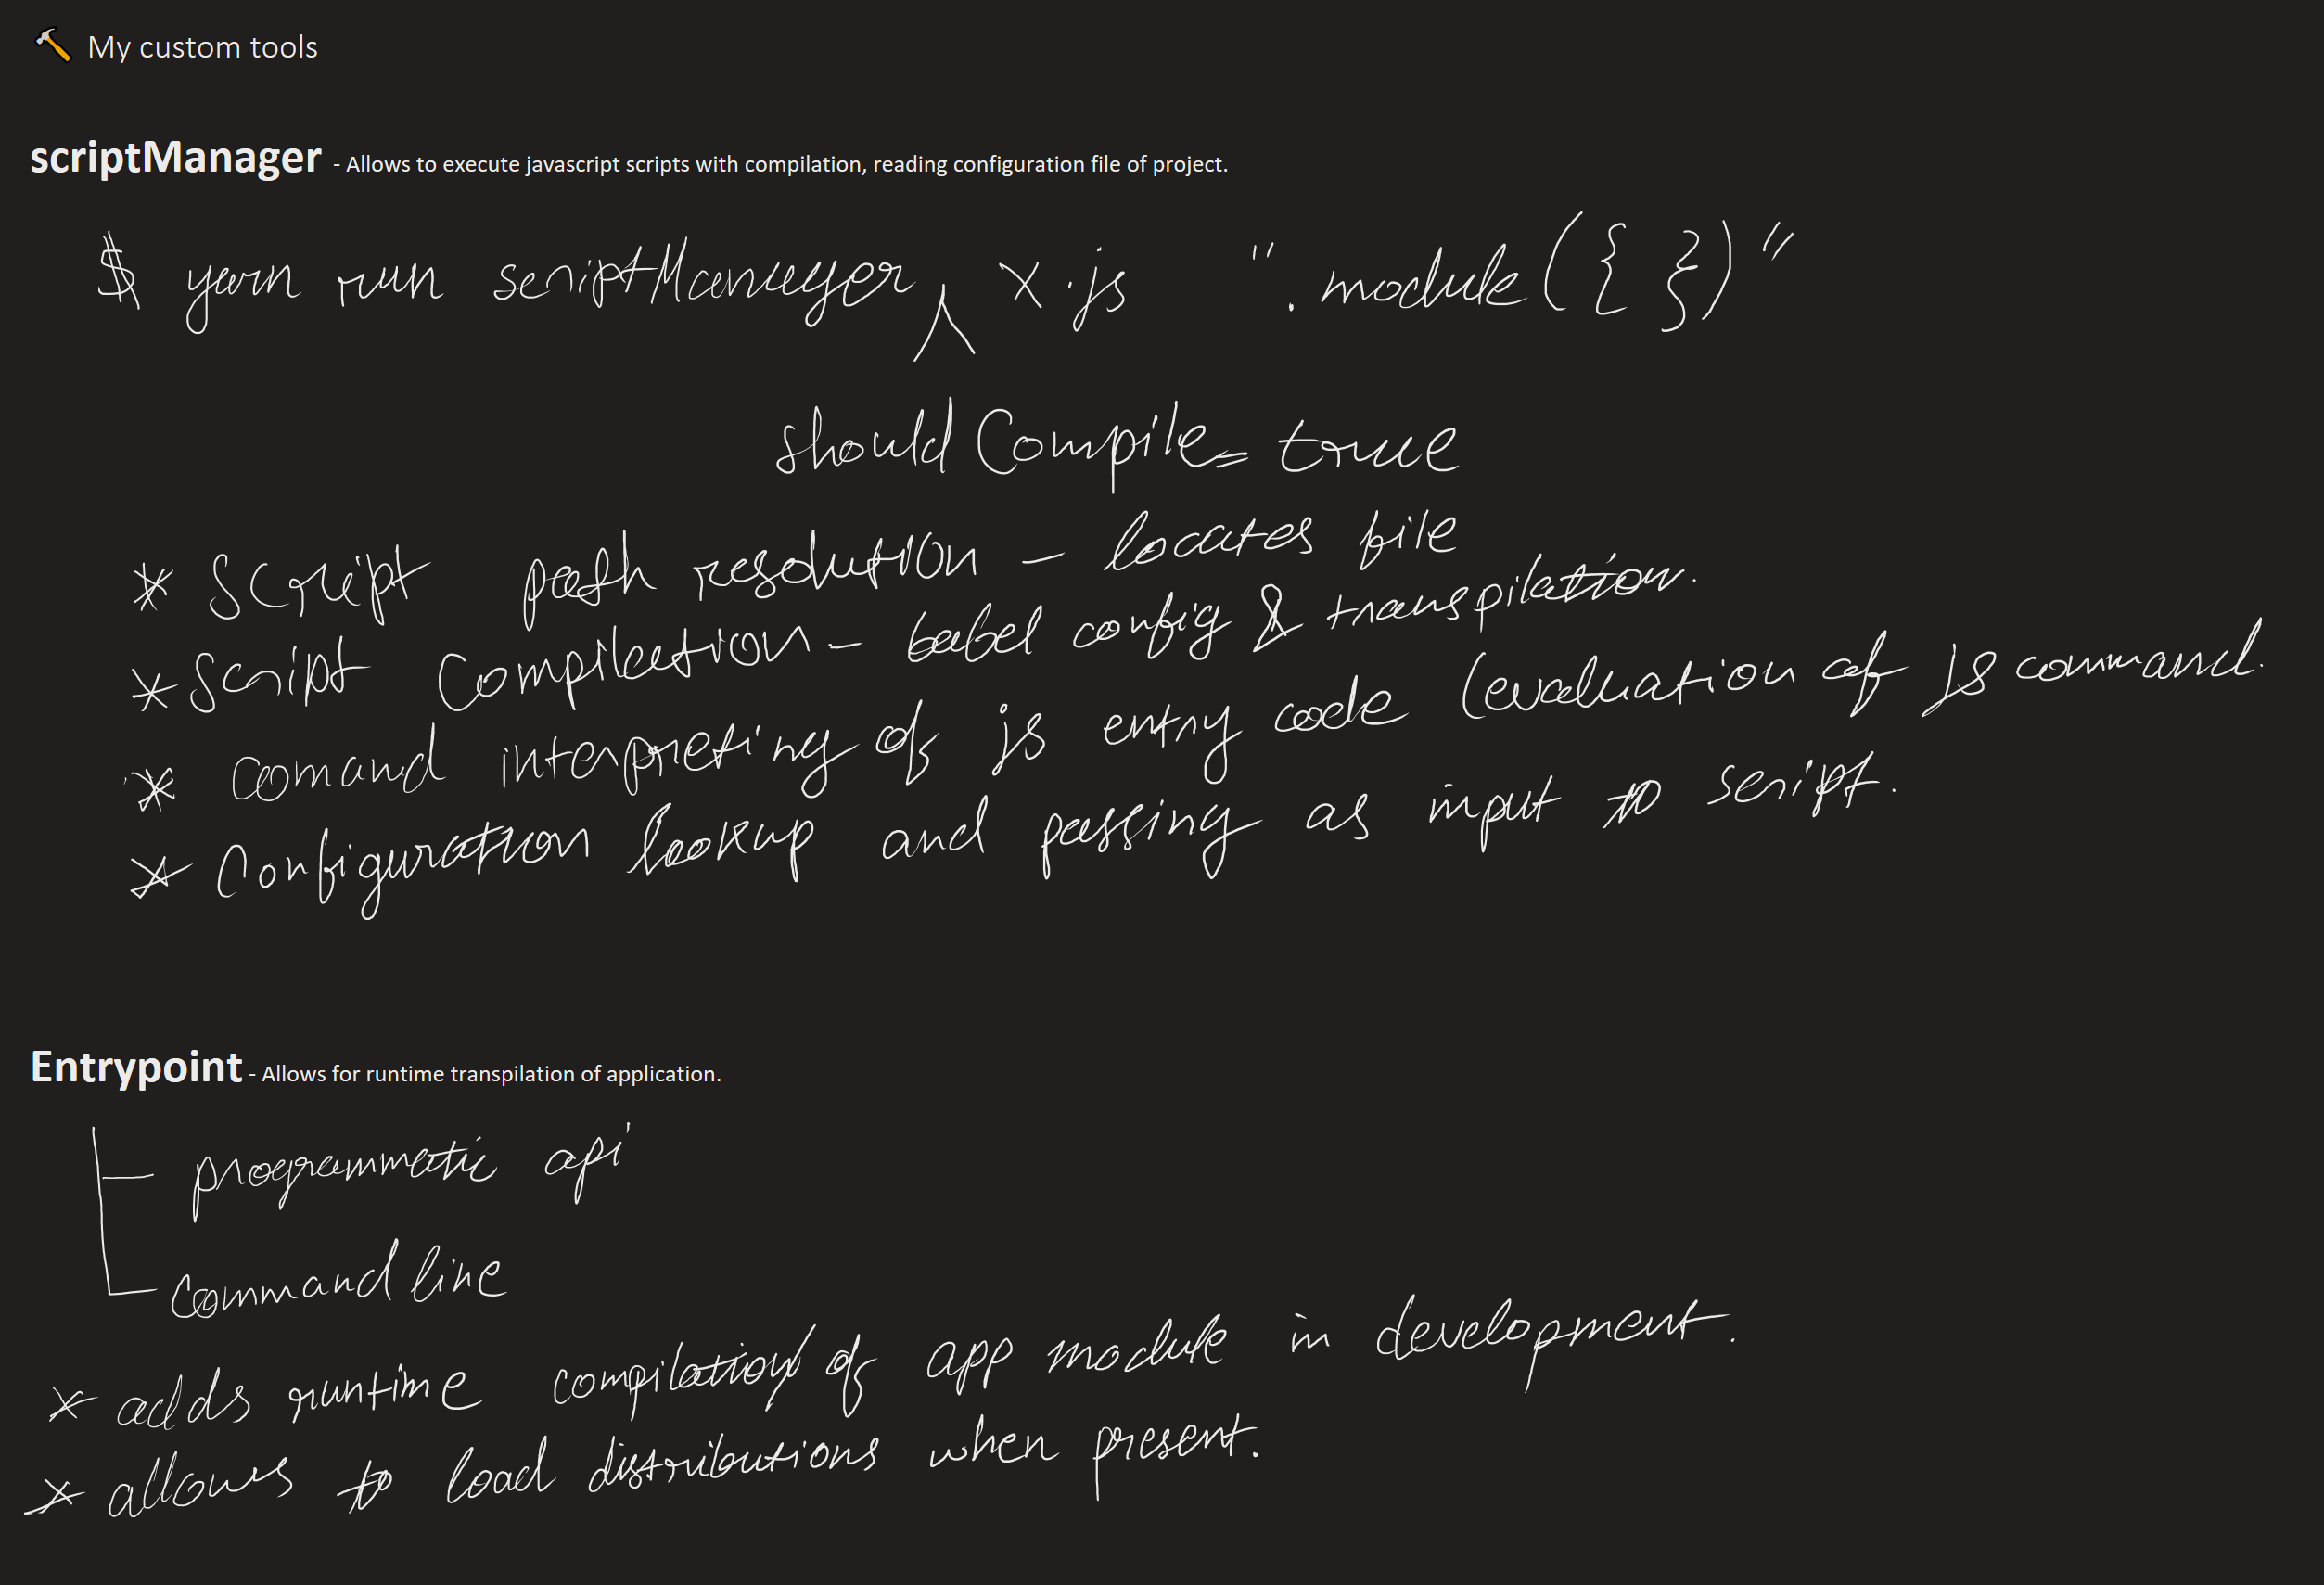 🔨 My custom tools
scriptManager - Allows to execute javascript scripts with compilation, reading configuration file of project.
$ yarn run scriptManager x.js ".module({ })"
shouldCompile=true
* Script path resolution - locates file
* Script Compilation - babel config & transpilation.
* comand interpreting of js entry code (evaluation of js command.
* Configuration lookup and passing as input to script.
Entrypoint - Allows for runtime transpilation of application.
programmatic api
Command line
* adds runtime compilation of app module in development.
* allows to load distributions when present.